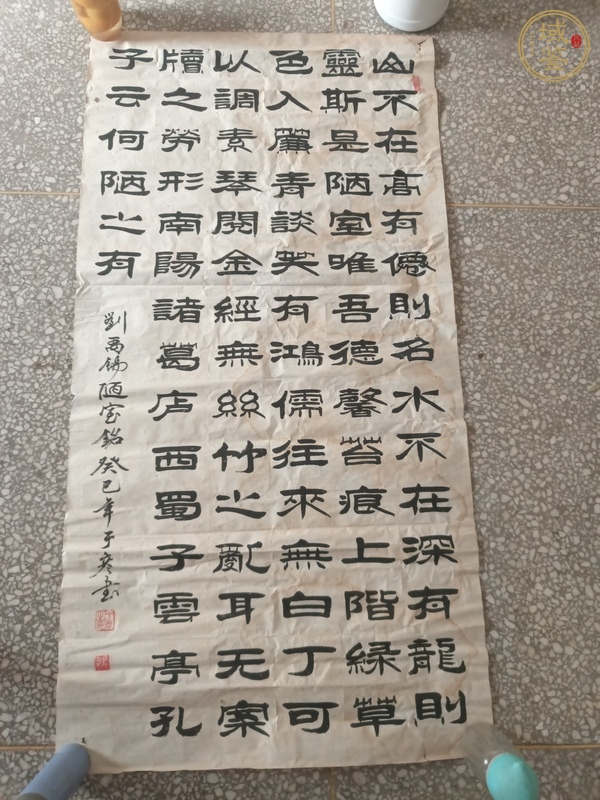 山不在高有僊則名水不在深有龍則
靈斯是陋室唯吾德馨苔痕上階緑草
色入簾青談笑有鴻儒往來無白丁可
以調素琴閱金經無絲竹之亂耳无案
牘之勞形南陽諸葛庐西蜀子雲亭孔
子云何陋之有
劉禹锡陋室銘癸巳年于彦書